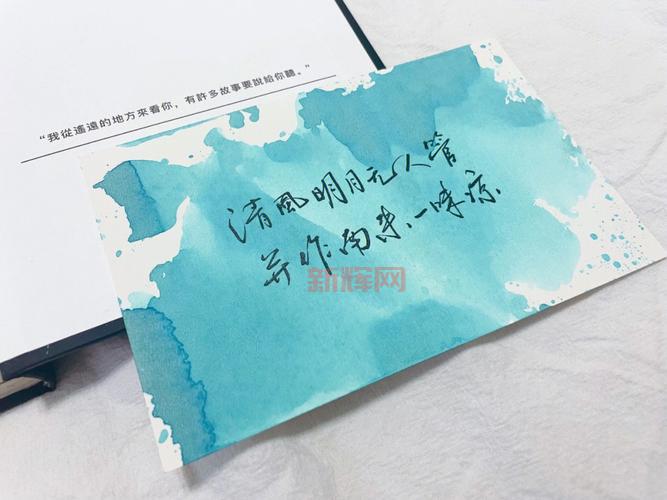 “我從遙遠的地方來看你，有許多故事要說給你聽。”
清風明月无人管
并作南来一味凉
新辉网